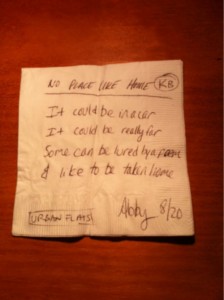 NO PLACE LIKE HOME KB
It could be in a car
It could be really far
Some can be lured by a
& like to be taken home
URBAN FLATS
Abby 8/20